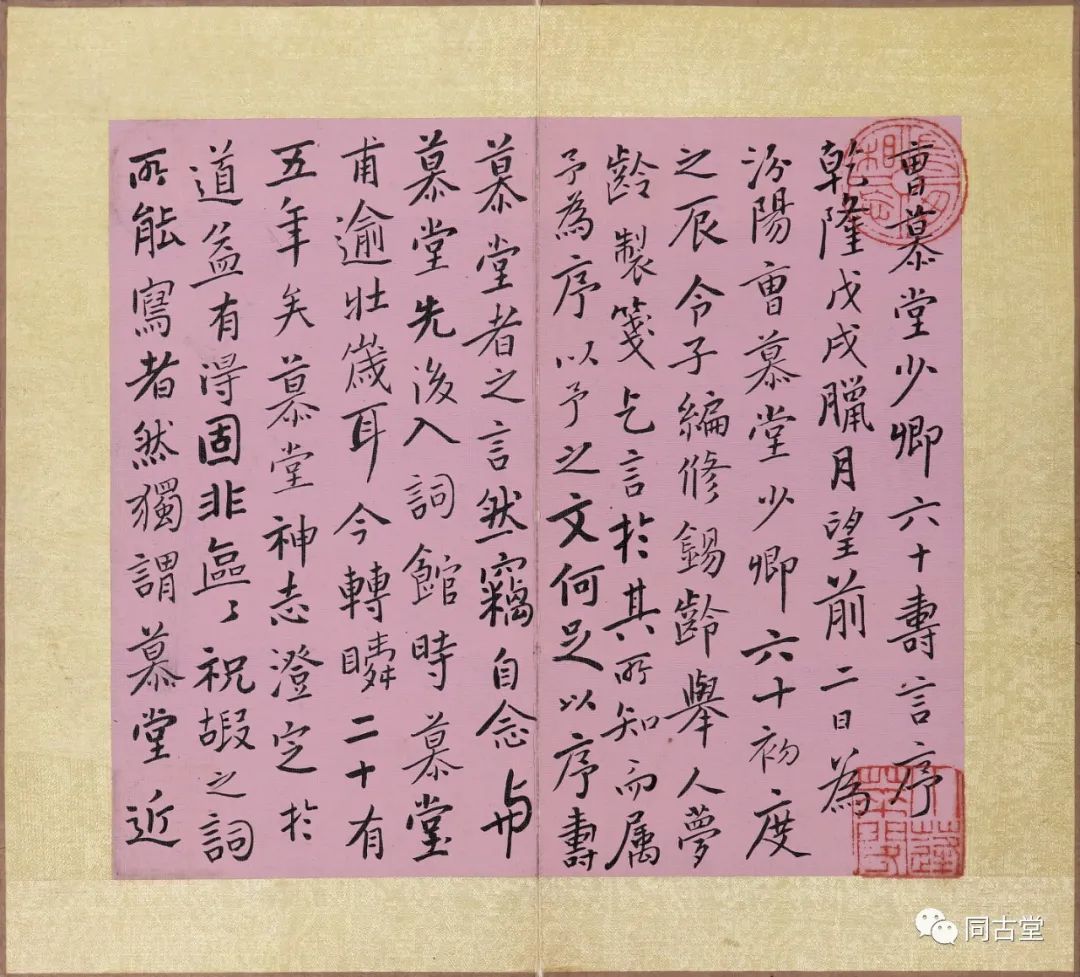 曹慕堂少卿六十壽言序
乾隆戊戌臘月望前二日為
汾陽曹慕堂少卿六十初度
之辰令子編修錫齡舉人夢
齡製箋乞言於其所知而属
予為序以予之文何足以序壽
慕堂者之言然竊自念与
慕堂先後入詞館時慕堂
甫逾壯歲耳今轉瞬二十有
五年矣慕堂神志澄定於
道益有得固非區〻祝嘏之詞
所能寫者然獨謂慕堂近
同古堂